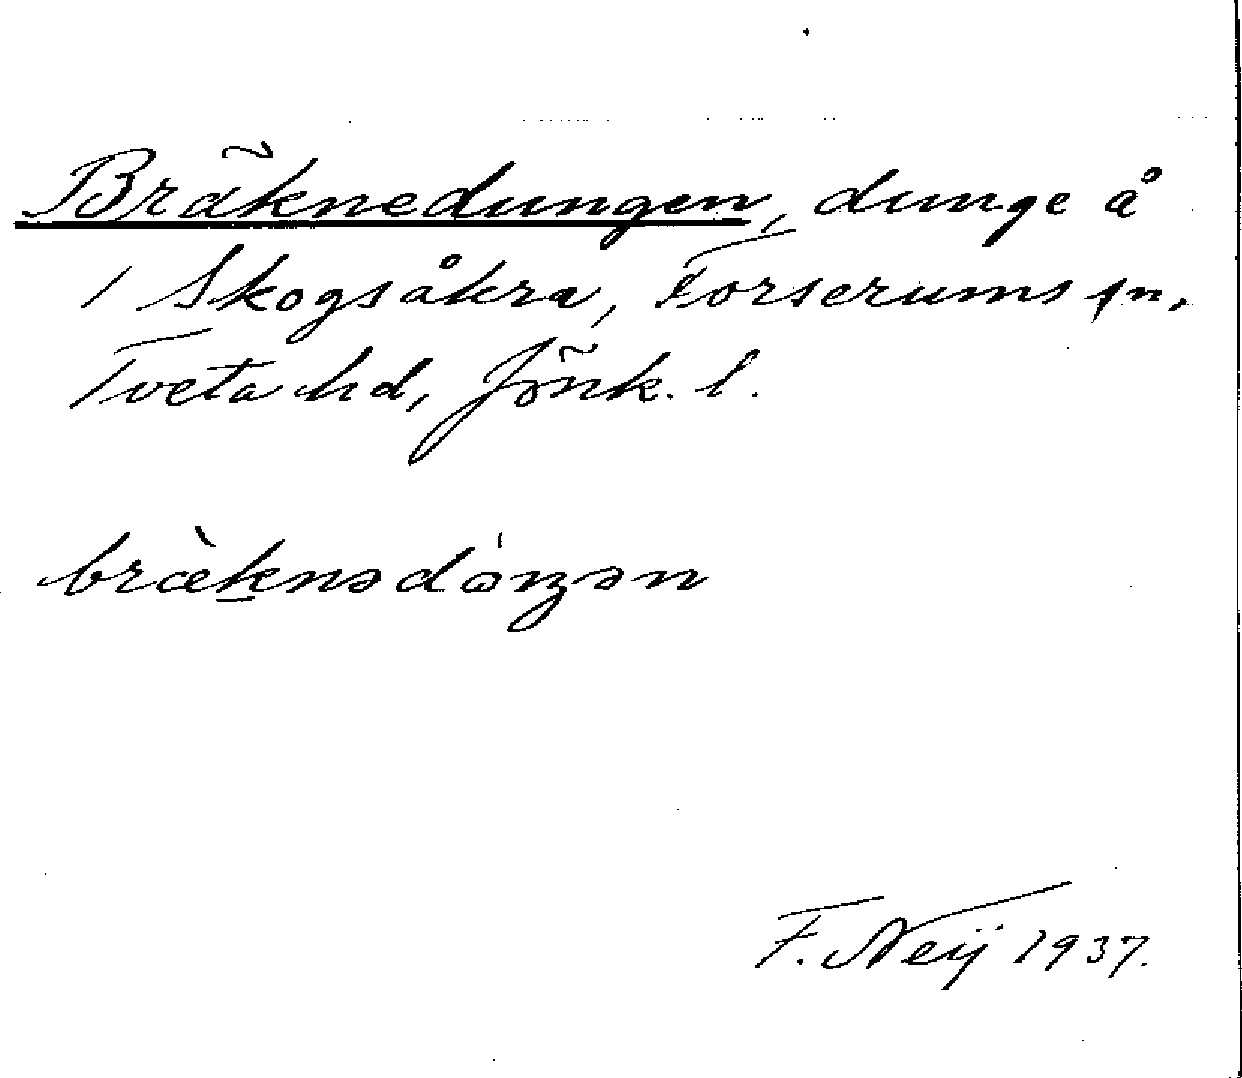 Bräknedungen, dunge å
1 Skogsåkra, Forserums sn,
Tveta hd, Jönk. l.
bræ̀knədȯŋən
F. Neij 1937.